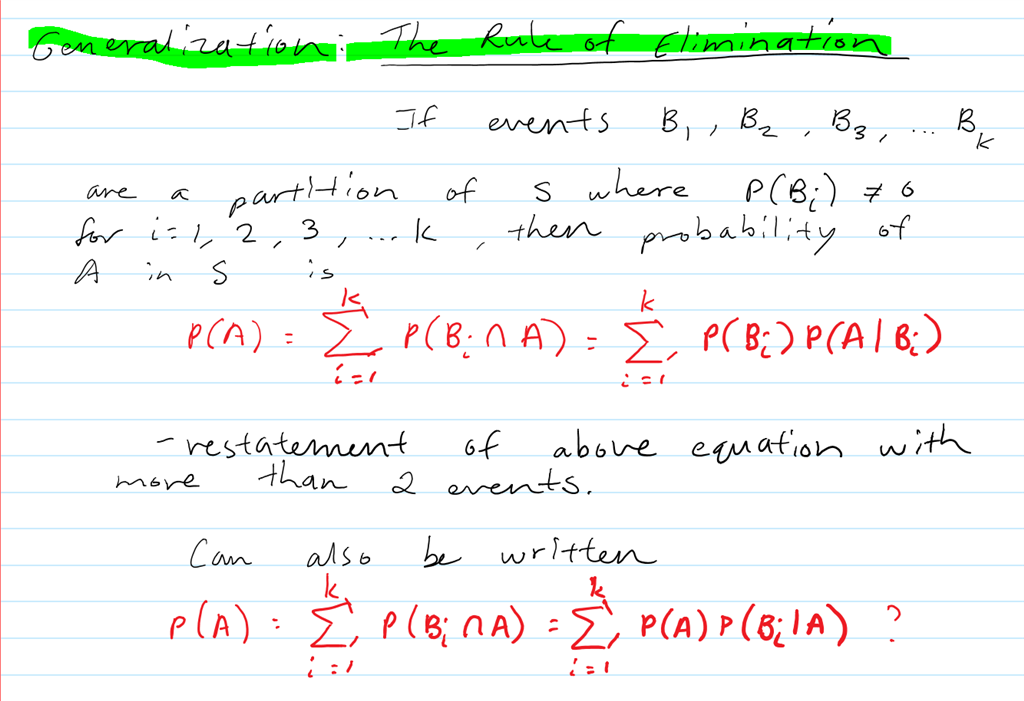 Generalization: The Rule of Elimination
If events B₁, B₂, B₃, ... Bₖ
are a partition of S where P(Bᵢ) ≠ 0
for i = 1, 2, 3, ... k, then probability of
A in S is
P(A) = ∑ᵢ₌₁ᵏ P(Bᵢ ∩ A) = ∑ᵢ₌₁ᵏ P(Bᵢ) P(A | Bᵢ)
- restatement of above equation with
more than 2 events.
Can also be written
P(A) = ∑ᵢ₌₁ᵏ P(Bᵢ ∩ A) = ∑ᵢ₌₁ᵏ P(A) P(Bᵢ | A) ?